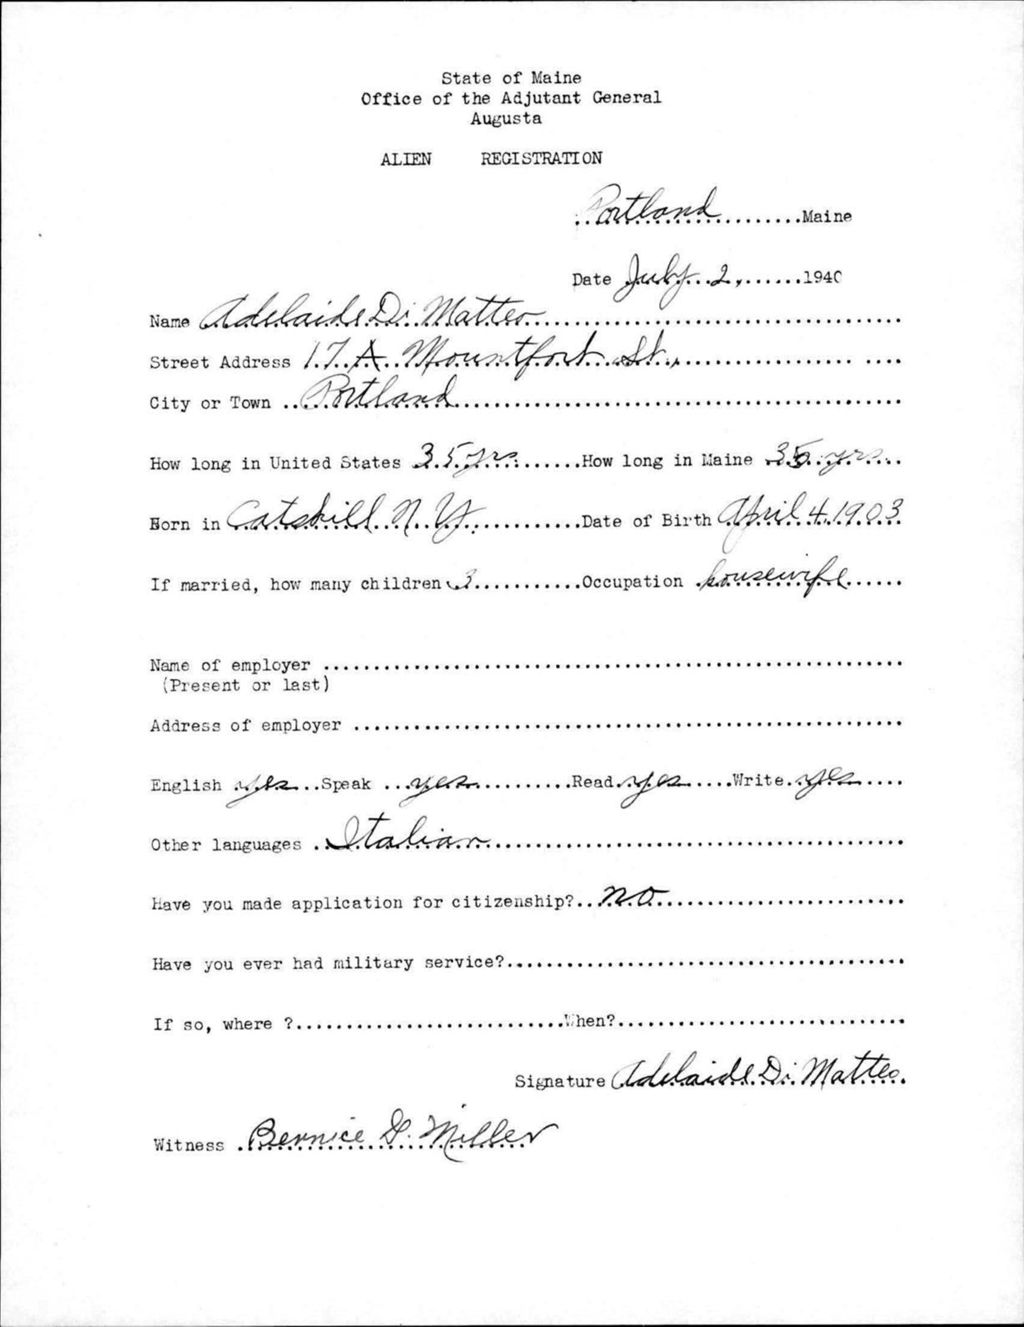 State of Maine
Office of the Adjutant General
Augusta
ALIEN REGISTRATION
Portland Maine
Date July 2, 1940
Name Adelaide Di Matteo
Street Address 17 A Mountfort St,
City or Town Portland
How long in United States 35 yrs How long in Maine 35 yrs
Born in Catskill N. Y. Date of Birth April 4, 1903
If married, how many children 3 Occupation housewife
Name of employer
(Present or last)
Address of employer
English yes Speak yes Read yes Write yes
Other languages Italian
Have you made application for citizenship? no
Have you ever had military service?
If so, where ? When?
Signature Adelaide Di Matteo
Witness Bernice D. Miller